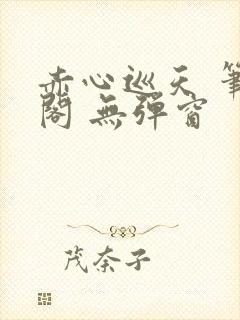 赤心巡天 筆
閣 無彈窗
茂奈子